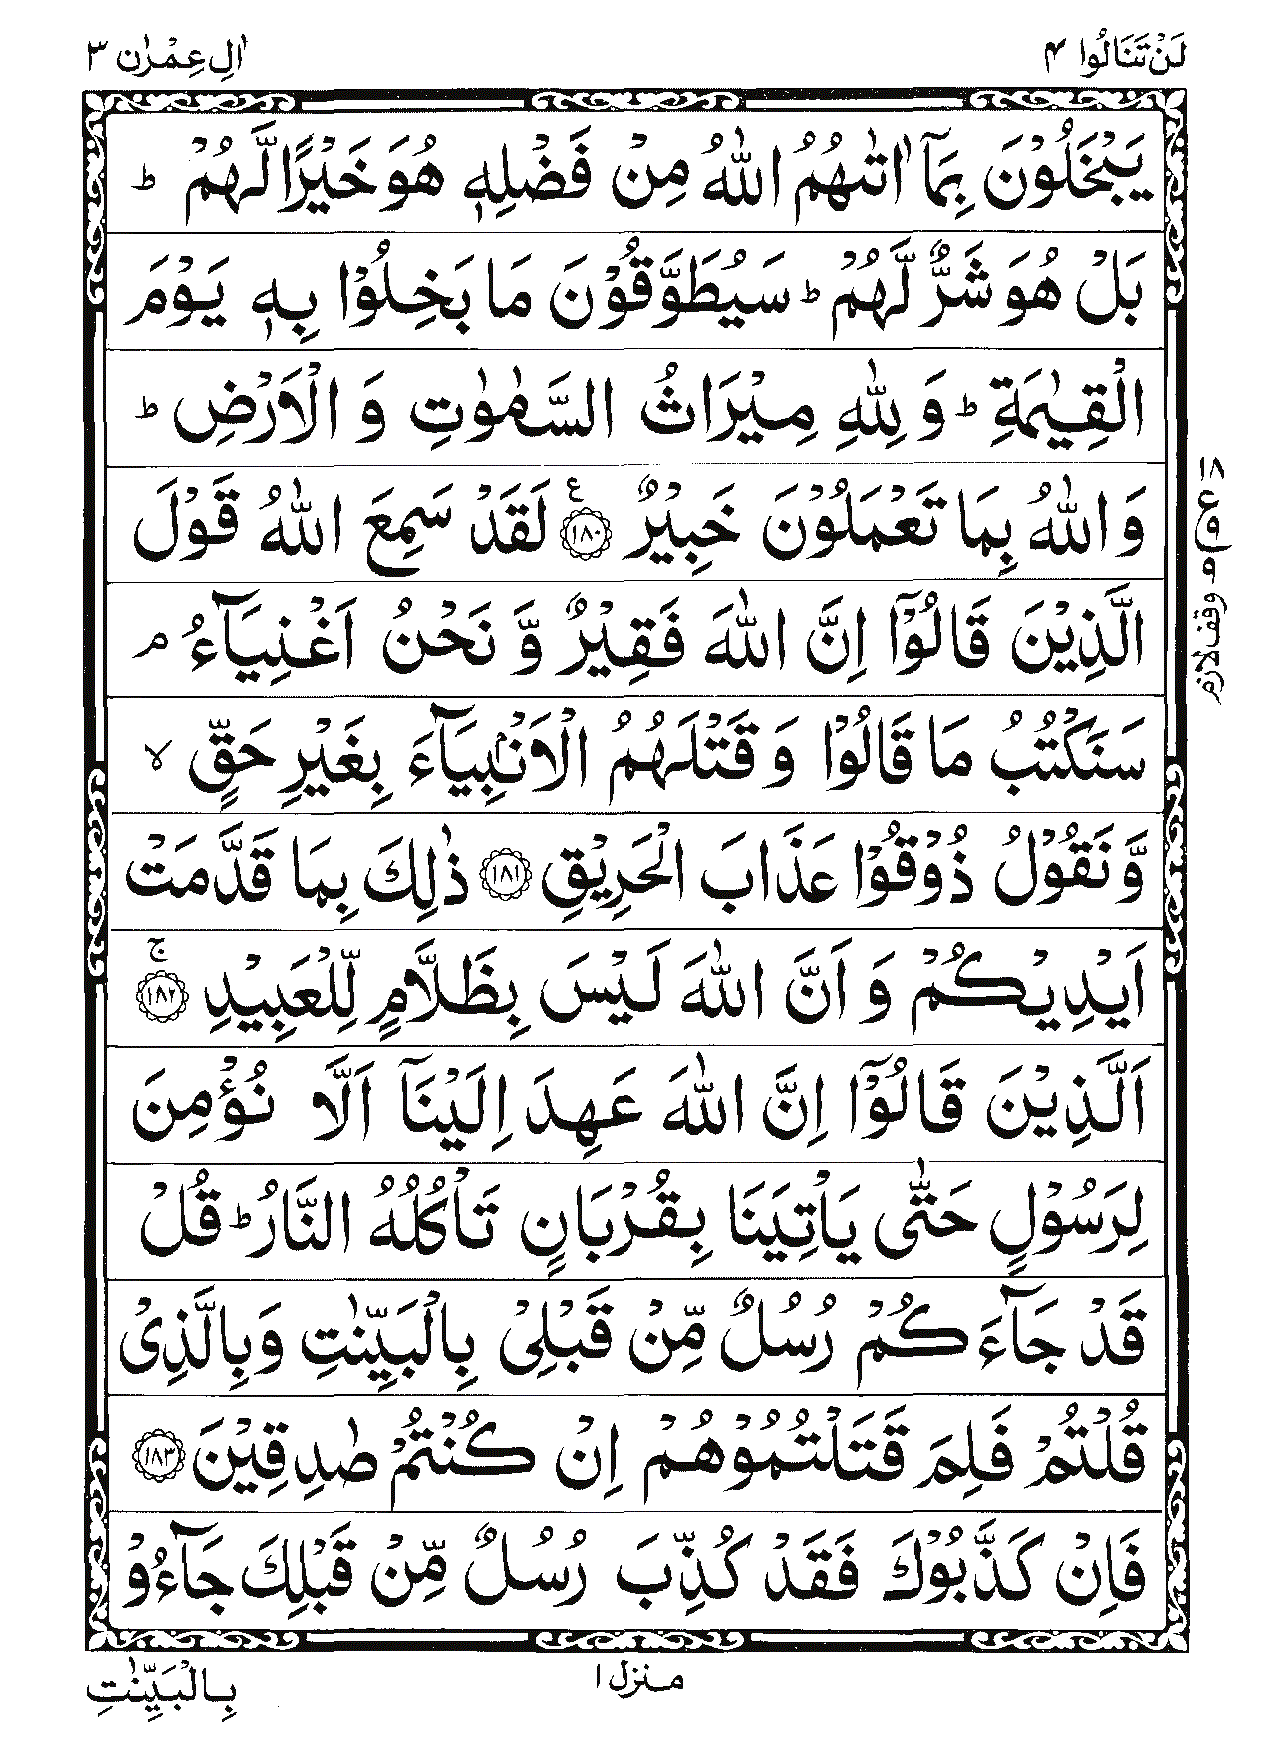 لَنْ تَنَالُوا ۴
اٰلِ عِمْرٰن ۳
يَبْخَلُوْنَ بِمَاۤ اٰتٰىهُمُ اللّٰهُ مِنْ فَضْلِهٖ هُوَ خَيْرًا لَّهُمْ ؕ
بَلْ هُوَ شَرٌّ لَّهُمْ ؕ سَيُطَوَّقُوْنَ مَا بَخِلُوْا بِهٖ يَوْمَ
الْقِيٰمَةِ ؕ وَ لِلّٰهِ مِيْرَاثُ السَّمٰوٰتِ وَ الْاَرْضِ ؕ
وَ اللّٰهُ بِمَا تَعْمَلُوْنَ خَبِيْرٌ ﴿۱۸۰﴾ ع لَقَدْ سَمِعَ اللّٰهُ قَوْلَ
۱۸
ع
۹
۹
وقف لازم
الَّذِيْنَ قَالُوْۤا اِنَّ اللّٰهَ فَقِيْرٌ وَّ نَحْنُ اَغْنِيَآءُ م
سَنَكْتُبُ مَا قَالُوْا وَ قَتْلَهُمُ الْاَنْۢبِيَآءَ بِغَيْرِ حَقٍّ لا
وَّ نَقُوْلُ ذُوْقُوْا عَذَابَ الْحَرِيْقِ ﴿۱۸۱﴾ ذٰلِكَ بِمَا قَدَّمَتْ
اَيْدِيْكُمْ وَ اَنَّ اللّٰهَ لَيْسَ بِظَلَّامٍ لِّلْعَبِيْدِ ﴿۱۸۲﴾ ج
اَلَّذِيْنَ قَالُوْۤا اِنَّ اللّٰهَ عَهِدَ اِلَيْنَاۤ اَلَّا نُؤْمِنَ
لِرَسُوْلٍ حَتّٰى يَاْتِيَنَا بِقُرْبَانٍ تَاْكُلُهُ النَّارُ ؕ قُلْ
قَدْ جَآءَكُمْ رُسُلٌ مِّنْ قَبْلِىْ بِالْبَيِّنٰتِ وَبِالَّذِىْ
قُلْتُمْ فَلِمَ قَتَلْتُمُوْهُمْ اِنْ كُنْتُمْ صٰدِقِيْنَ ﴿۱۸۳﴾
فَاِنْ كَذَّبُوْكَ فَقَدْ كُذِّبَ رُسُلٌ مِّنْ قَبْلِكَ جَآءُوْ
منزل ۱
بِالْبَيِّنٰتِ